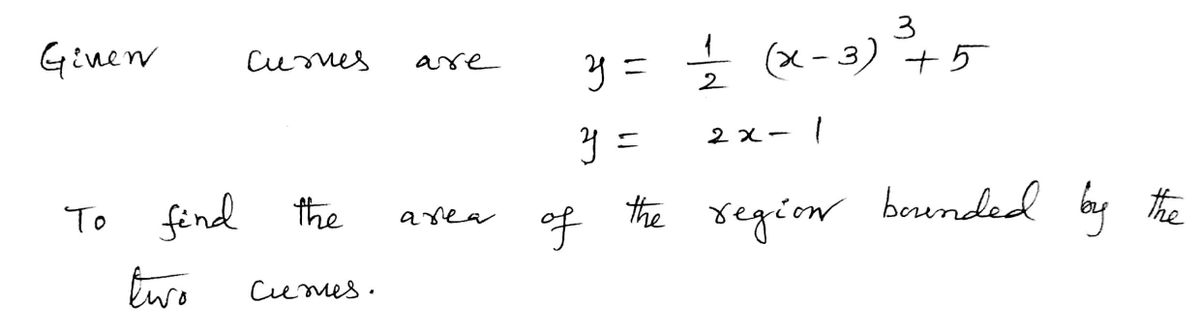 Given curves are y = 1/2 (x-3)³ + 5
y = 2x - 1
To find the area of the region bounded by the
two curves.